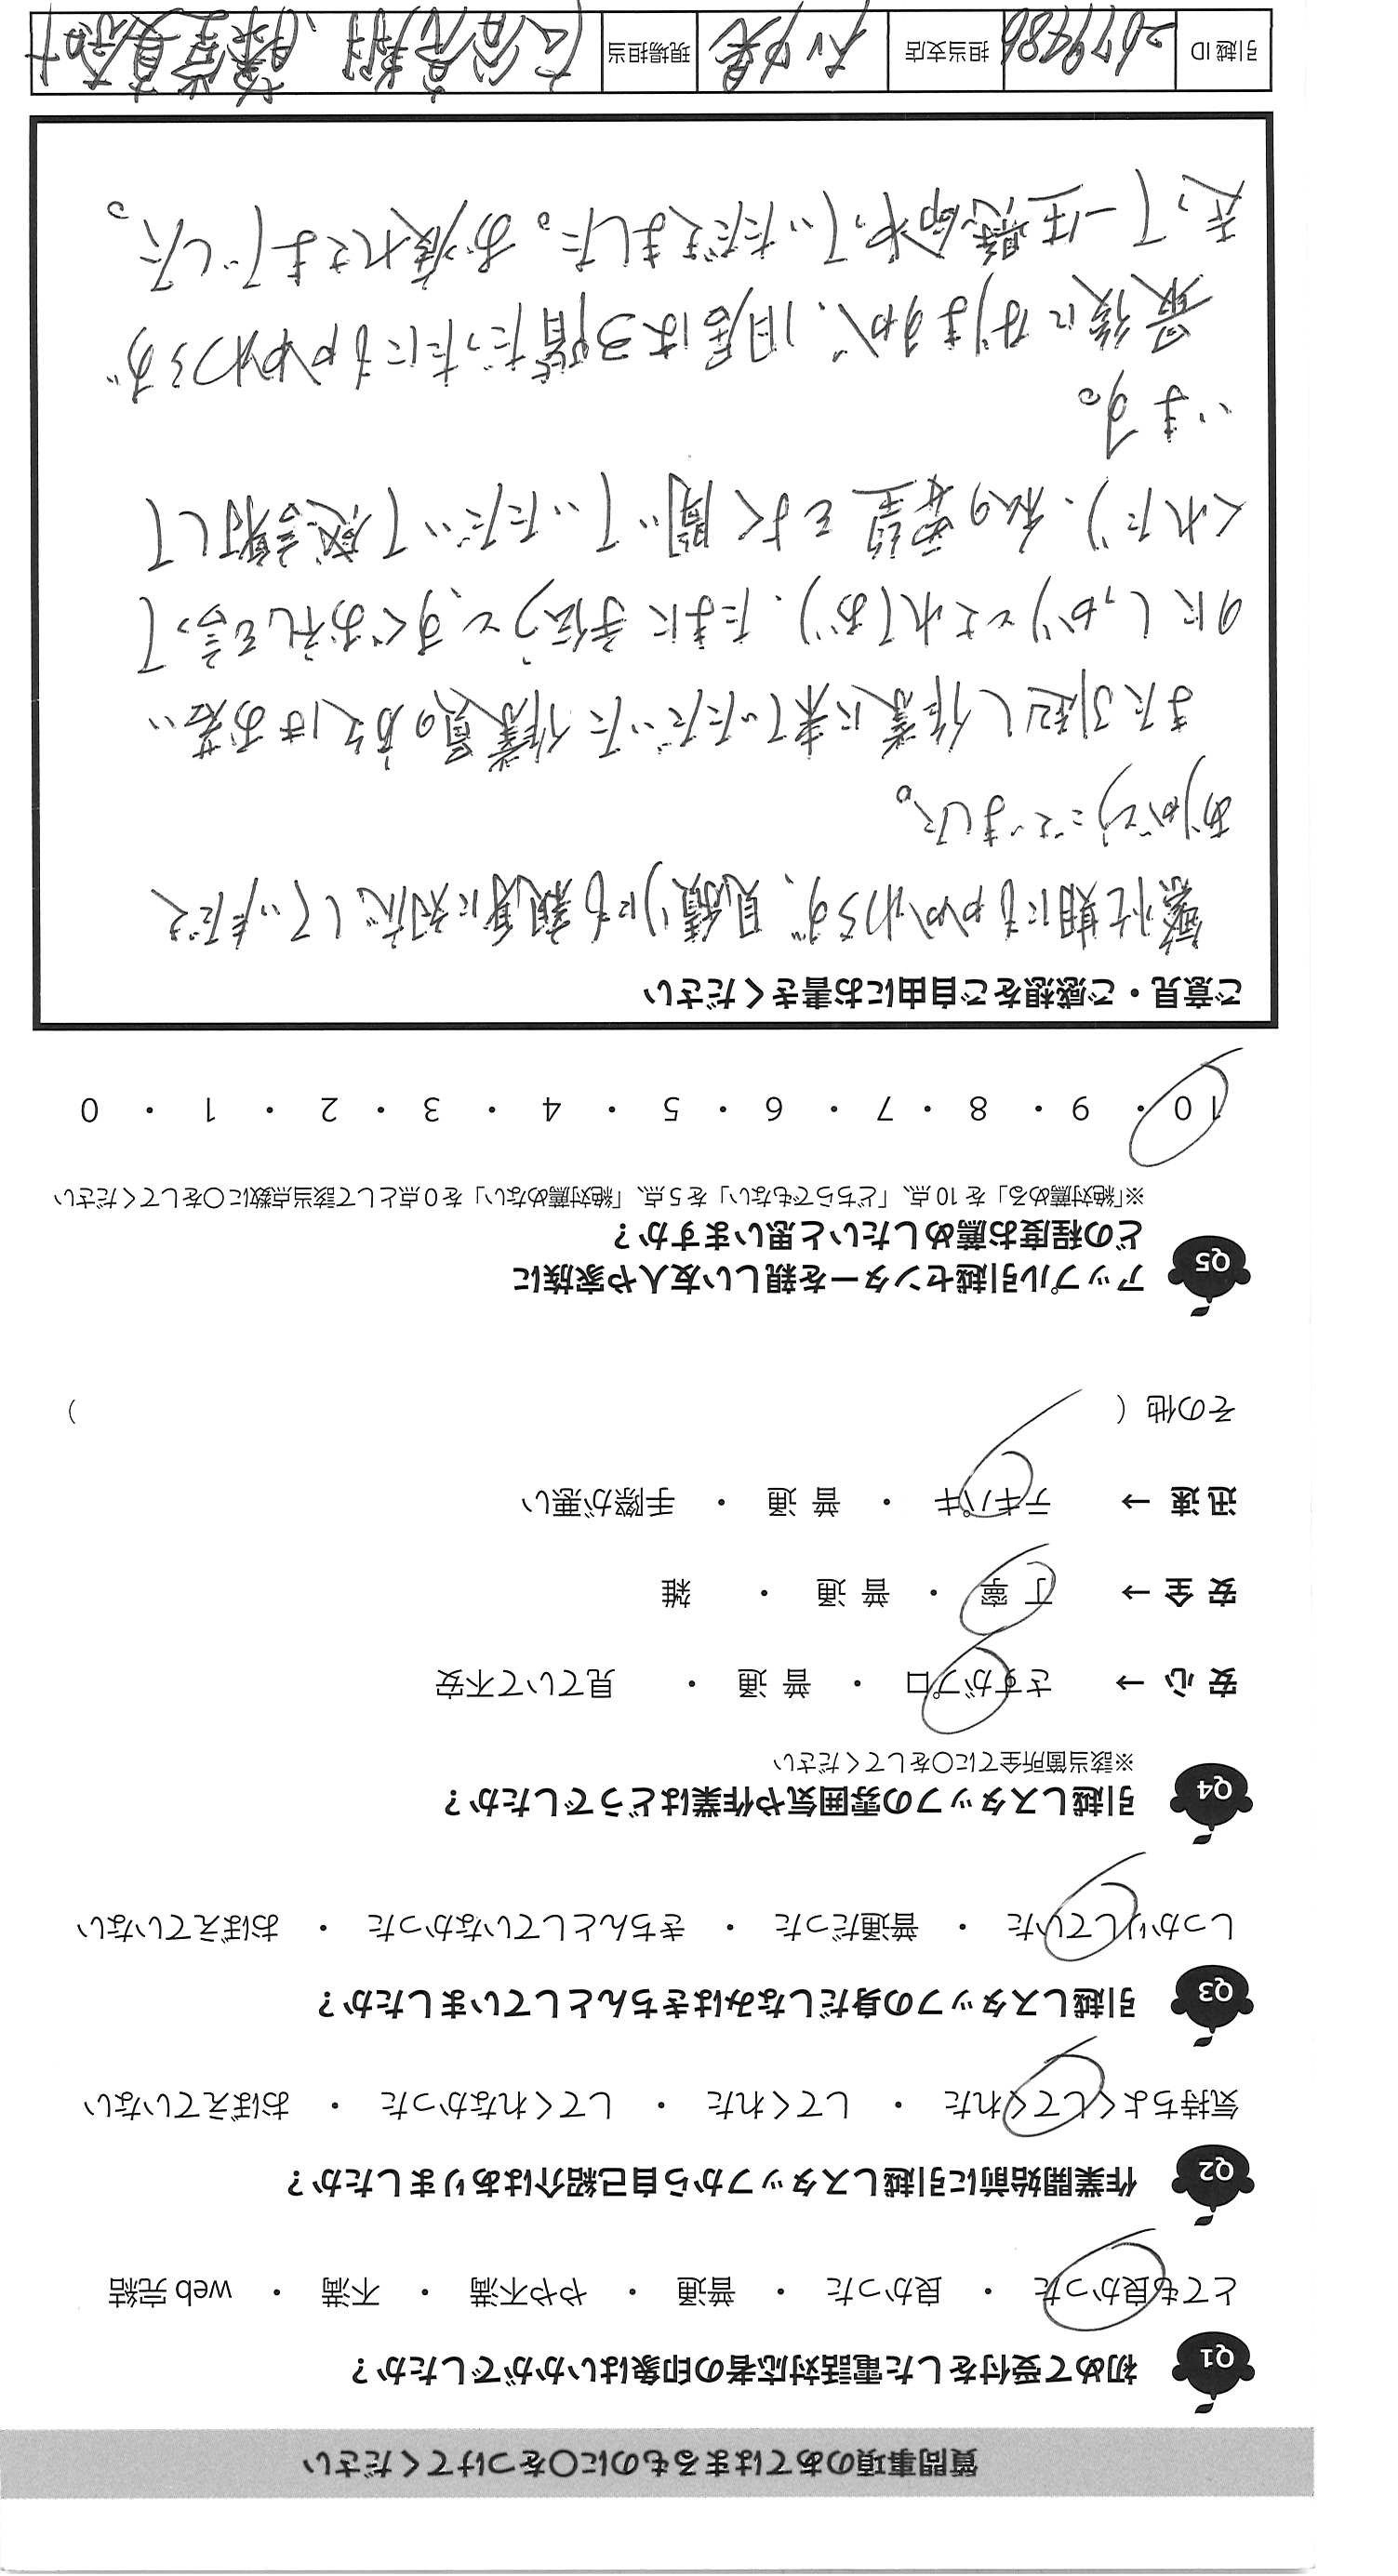 質問事項のあてはまるものに〇をつけてください
Q1 初めて受付をした電話対応者の印象はいかがでしたか?
とても良かった ・ 良かった ・ 普通 ・ やや不満 ・ 不満 ・ web 完結
Q2 作業開始前に引越しスタッフから自己紹介はありましたか?
気持ちよくしてくれた ・ してくれた ・ してくれなかった ・ おぼえていない
Q3 引越しスタッフの身だしなみはきちんとしていましたか?
しっかりしていた ・ 普通だった ・ きちんとしていなかった ・ おぼえていない
Q4 引越しスタッフの雰囲気や作業はどうでしたか?
※該当箇所全てに〇をしてください
安心 → さすがプロ ・ 普通 ・ 見ていて不安
安全 → 丁寧 ・ 普通 ・ 雑
迅速 → テキパキ ・ 普通 ・ 手際が悪い
その他 ( )
Q5 アップル引越センターを親しい友人や家族に
どの程度お薦めしたいと思いますか?
※「絶対薦める」を 10 点、「どちらでもない」を 5 点、「絶対薦めない」を 0 点として該当点数に〇をしてください
10 ・ 9 ・ 8 ・ 7 ・ 6 ・ 5 ・ 4 ・ 3 ・ 2 ・ 1 ・ 0
ご意見・ご感想をご自由にお書きください
繁忙期にもかかわらず、見積りにも親身に対応していただき
ありがとうございました。
また引越し作業に来ていただいた作業員の方々はお若い
のにしっかりとされており、たまに手伝うと、すぐお礼を言って
くれたり、私の希望をよく聞いていただいて感謝して
います。
最後になりますが、旧居は3階だったにもかかわらず
走って一生懸命やっていただきました。お疲れさまでした。
引越 ID 担当支店 現場担当